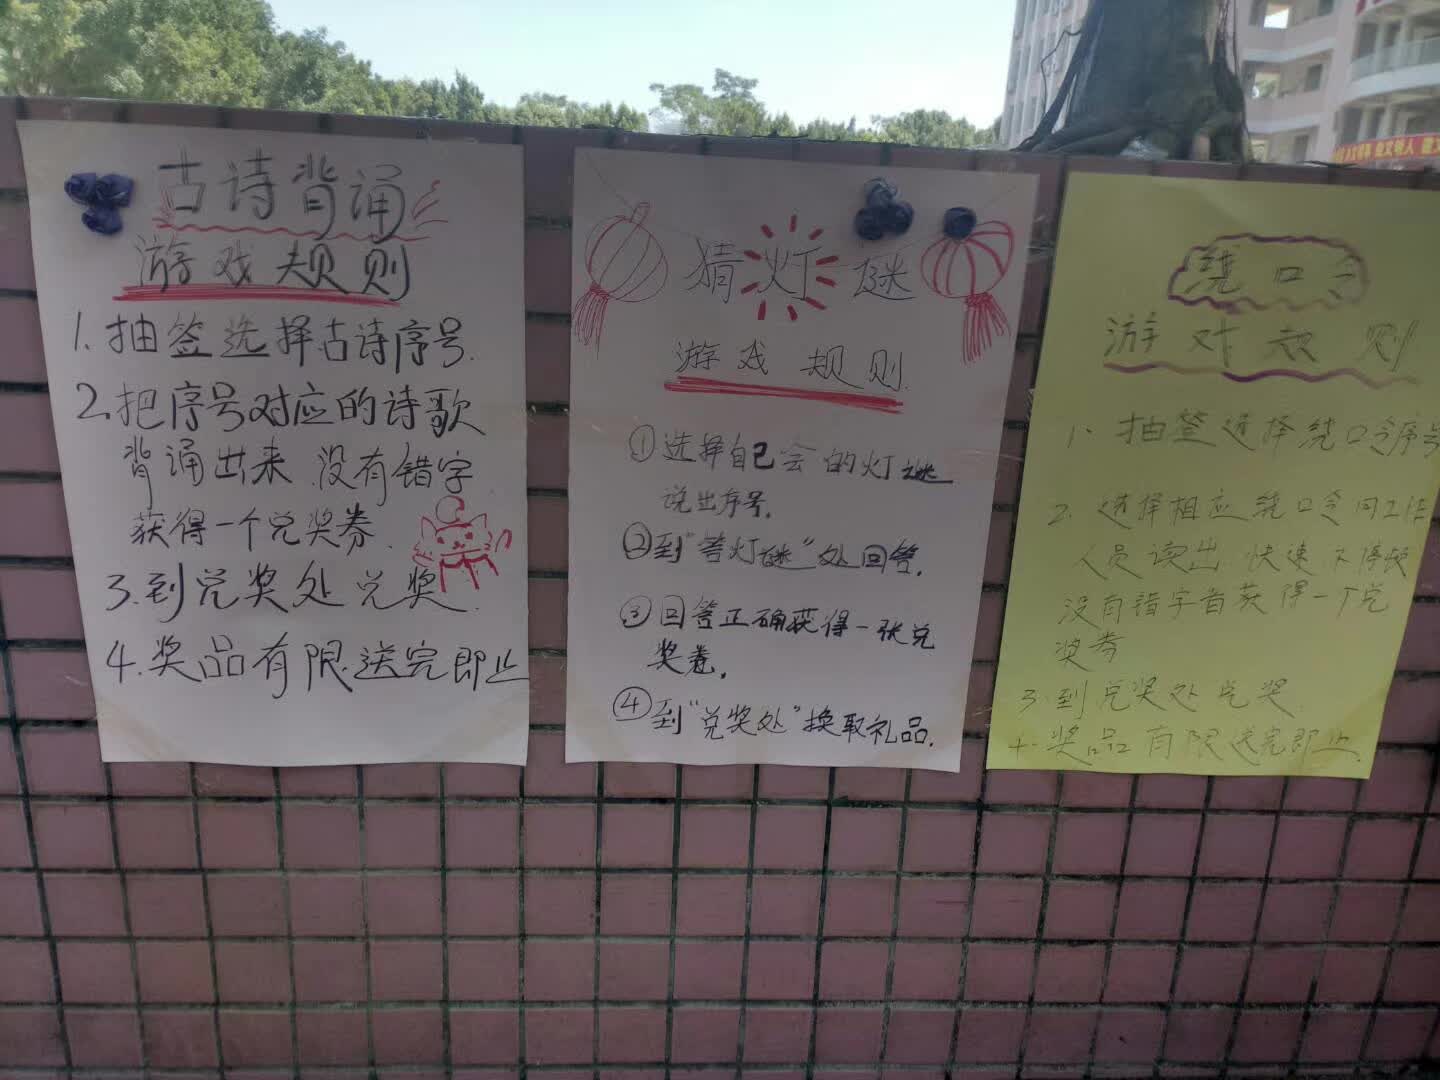 古诗背诵
游戏规则
1.抽签选择古诗序号.
2.把序号对应的诗歌
背诵出来.没有错字
获得一个兑奖券.
3.到兑奖处兑奖.
4.奖品有限.送完即止
猜灯谜
游戏规则
①选择自己会的灯谜
说出序号.
②到“答灯谜”处回答.
③回答正确获得一张兑
奖卷.
④到“兑奖处”换取礼品.
绕口令
游戏规则
1.抽签选择绕口令序号
2.选择相应绕口令向工作
人员读出 快速 不停顿
没有错字者获得一个兑
奖券
3.到兑奖处兑奖.
4.奖品有限送完即止.